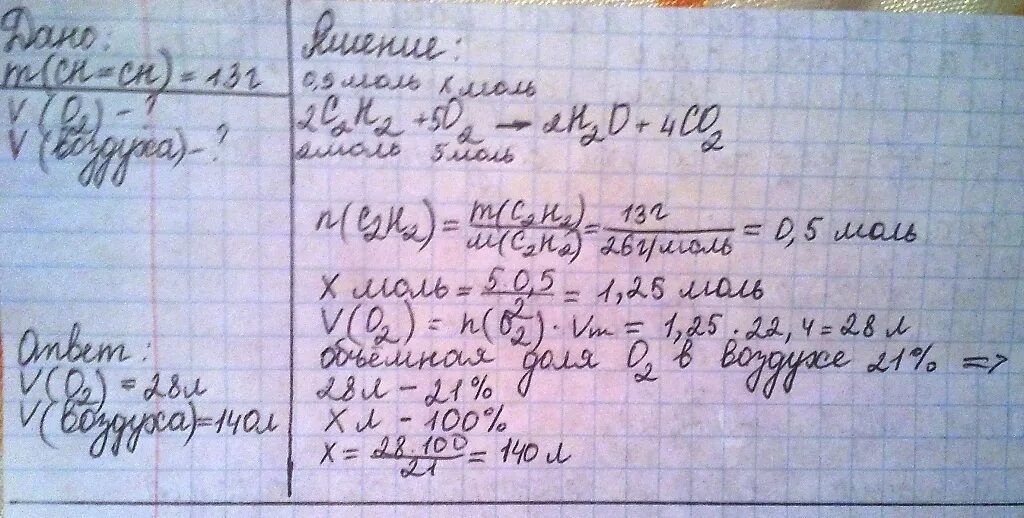 Дано:
m(CH=CH) = 13г
V(O2) - ?
V(воздуха) - ?
Ответ:
V(O2) = 28л
V(воздуха) = 140л
Решение:
0,5 моль X моль
2C2H2 + 5O2 → 2H2O + 4CO2
2моль 5 моль
n(C2H2) = m(C2H2)/M(C2H2) = 13г/26г/моль = 0,5 моль
X моль = 5·0,5/2 = 1,25 моль
V(O2) = n(O2) · Vm = 1,25 · 22,4 = 28 л
объёмная доля O2 в воздухе 21% =>
28л - 21%
X л - 100%
X = 28·100/21 = 140 л